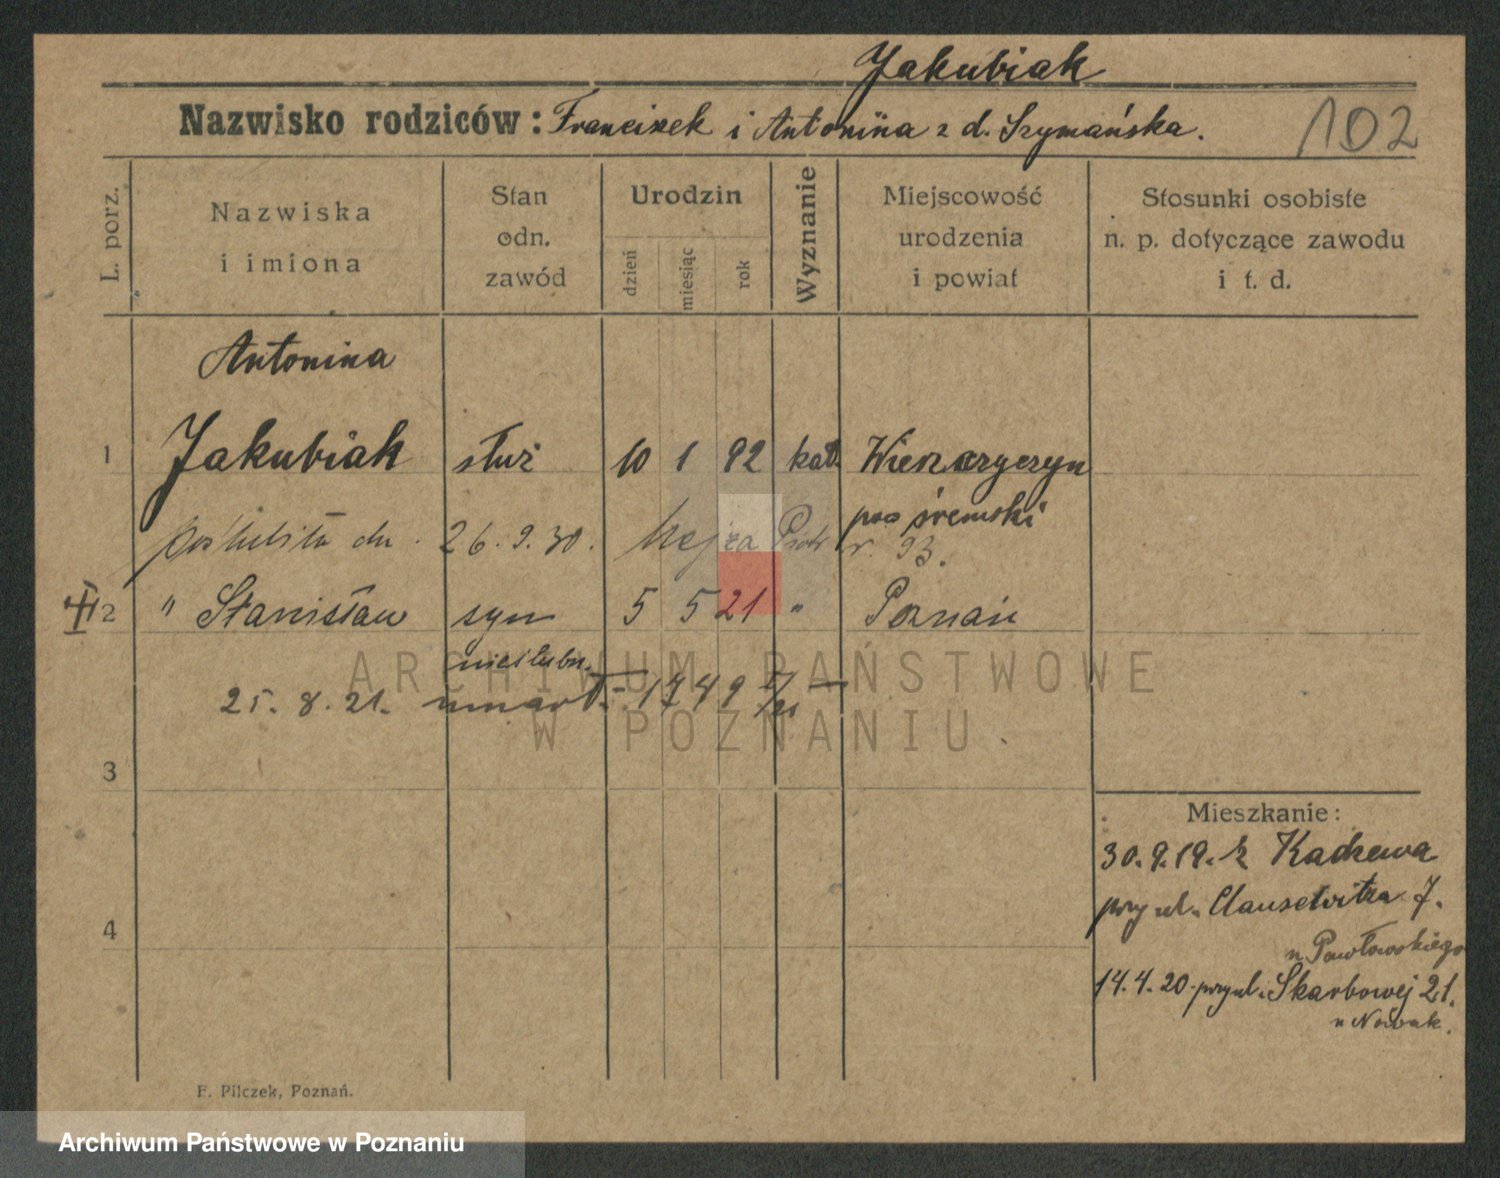 Jakubiak
Nazwisko rodziców: Franciszek i Antonina z d. Szymańska.
102
L. porz.
Nazwiska
i imiona
Stan
odn.
zawód
Urodzin
dzień
miesiąc
rok
Wyznanie
Miejscowość
urodzenia
i powiat
Stosunki osobiste
n. p. dotyczące zawodu
i t. d.
Antonina
1 Jakubiak służ 10 1 92 kat.
pow śremski
poślubiła dn. 26.9.30. Piotr r. 93.
2 " Stanisław syn 5 5 21 " Poznań
nieślubn.
25.8.21. umarł
ARCHIWUM PAŃSTWOWE
W POZNANIU
3
Mieszkanie:
30.9.19. z
przy ul. Clausewitza 7.
u Pawłowskiego
4
14.4.20 przy ul. Skarbowej 21.
u Nowak.
F. Pilczek, Poznań.
Archiwum Państwowe w Poznaniu